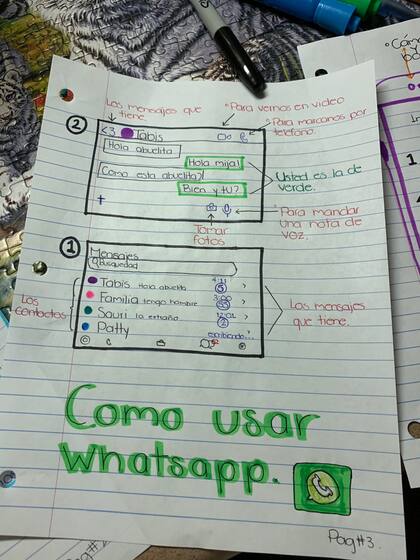 Los mensajes que
tiene.
Para vernos en video
Para marcarnos por
telefono.
2
<3 Tabis
Hola abuelita
Hola mija!
Como esta abuelita?!
Bien y tu?
Usted es la de
verde.
+
Tomar
fotos
Para mandar
una nota de
voz.
1
Mensajes
Busquedad
Los
contactos
Tabis Hola abuelita 4:21 >
Familia tengo hambre 3:00 >
Sauri la extraño 12:02 >
2
Patty escribiendo... >
Los mensajes
que tiene.
Como usar
Whatsapp.
Pag#3.